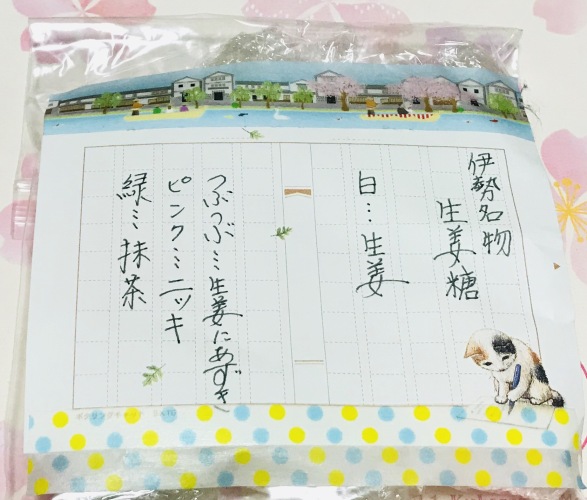 伊勢名物
生姜糖
白…生姜
つぶつぶ…生姜にあずき
ピンク…ニッキ
緑…抹茶